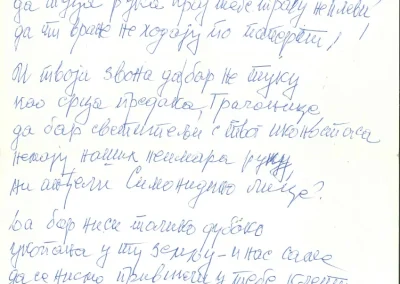 да туђа рука кроз твоје траву не плеви
да ти вране не ходају по паперти!
И твоја звона да бар не туку
као срца предака, Грачанице,
да бар светитељи с твог иконостаса
немају наших неимара руку
ни анђели Симонидино лице?
Да бар ниси толико дубоко
укопана у ту земљу – и нас саме
да се нисмо привикли у тебе клети